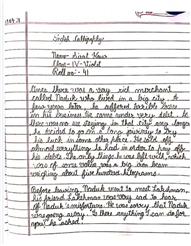 English Calligraphy
Name- Airat Kaur
Class- IV- Violet
Roll no:- 41
Once there was a very rich merchant
called Naduk who lived in a big city. A
few years later he suffered terrible losses
in his business. He came under very debt. As
there was no use staying in that city any longer
he decided to go on a long journey to try
his luck in some other place. He sold off
almost everything he had in order to pay off
his debts. The only thing he was left with which
was of some value was a big iron beam
weighing about five hundred kilograms.
Before leaving, Naduk went to meet Lakshman,
his friend. Lakshman was very sad to hear
of Naduk's misfortune. He was sorry that Naduk
was going away. Is there anything I can do for
you? he asked.